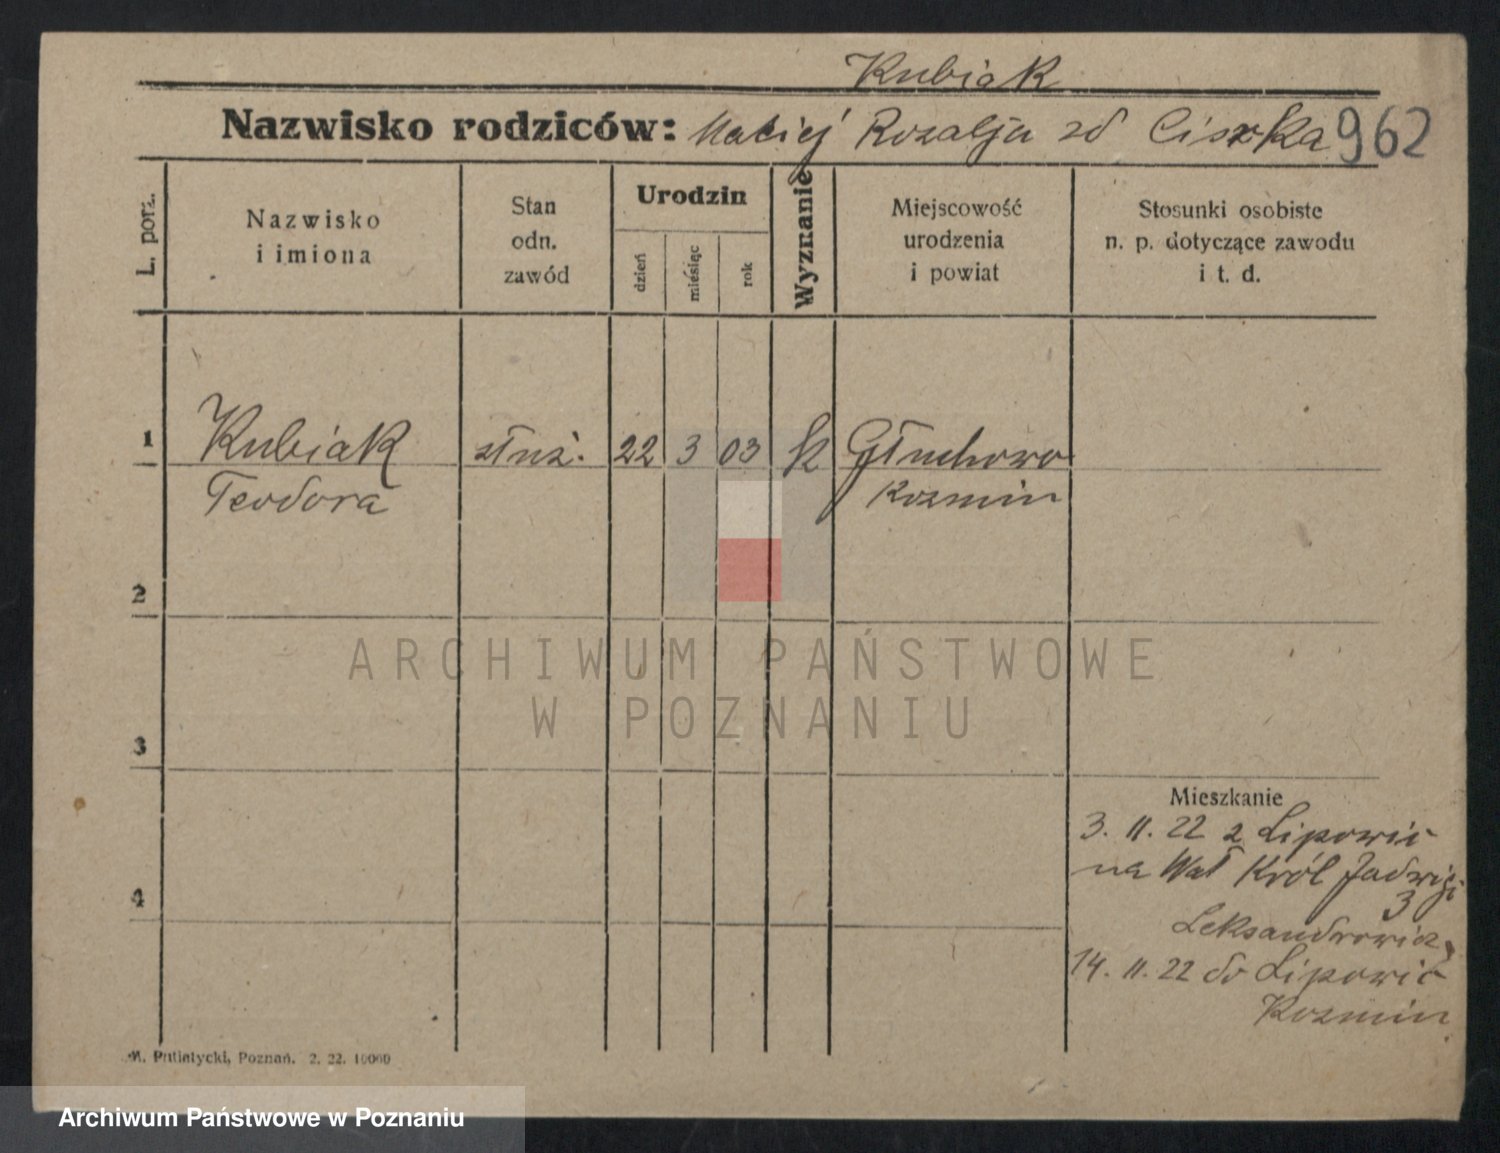 Kubiak
Nazwisko rodziców: Maciej Rozalja zd Ciszka 962
L. porz.
Nazwisko
i imiona
Stan
odn.
zawód
Urodzin
dzień
miesiąc
rok
Wyznanie
Miejscowość
urodzenia
i powiat
Stosunki osobiste
n. p. dotyczące zawodu
i t. d.
1 Kubiak służ. 22 3 03 k Głuchowo
Teodora Kozmin
2
3
4
Mieszkanie
3. 11. 22 z Lipowic
na Wał Król Jadwigi
3
Leksandrowicz
14. 11. 22 do Lipowic
Kozmin
M. Putiatycki, Poznań. 2. 22. 10000
ARCHIWUM PAŃSTWOWE
W POZNANIU
Archiwum Państwowe w Poznaniu